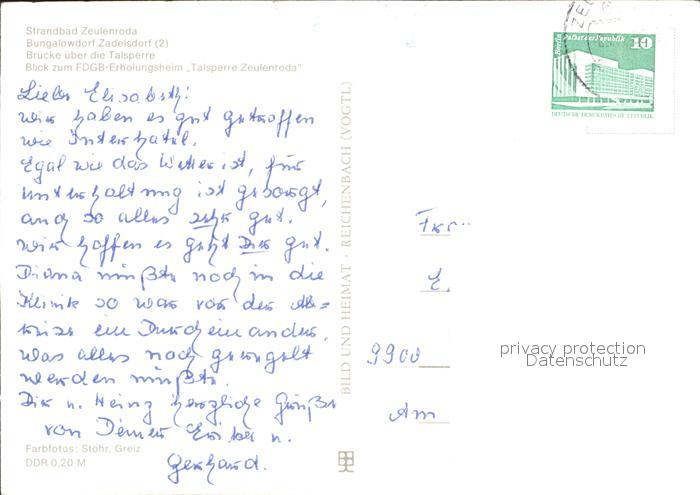 Strandbad Zeulenroda
Bungalowdorf Zadelsdorf (2)
Brücke über die Talsperre
Blick zum FDGB-Erholungsheim „Talsperre Zeulenroda"
Liebe Elisabeth!
wir haben es gut getroffen
wie Interhotel.
Egal wie das Wetter ist, für
Unterhaltung ist gesorgt,
auch so alles sehr gut.
wir hoffen es geht Dir gut.
Diana mußte noch in die
Klinik so war vor der Ab=
reise ein Durcheinander,
was alles noch geregelt
werden mußte.
Dir u. Heinz herzliche Grüße
von Deiner u.
Gerhard.
Farbfotos: Stöhr, Greiz
DDR 0,20 M
BILD UND HEIMAT · REICHENBACH (VOGTL)
Berlin Palast der Republik 10
DEUTSCHE DEMOKRATISCHE REPUBLIK
ZE
E.
9900
Am
privacy protection
Datenschutz